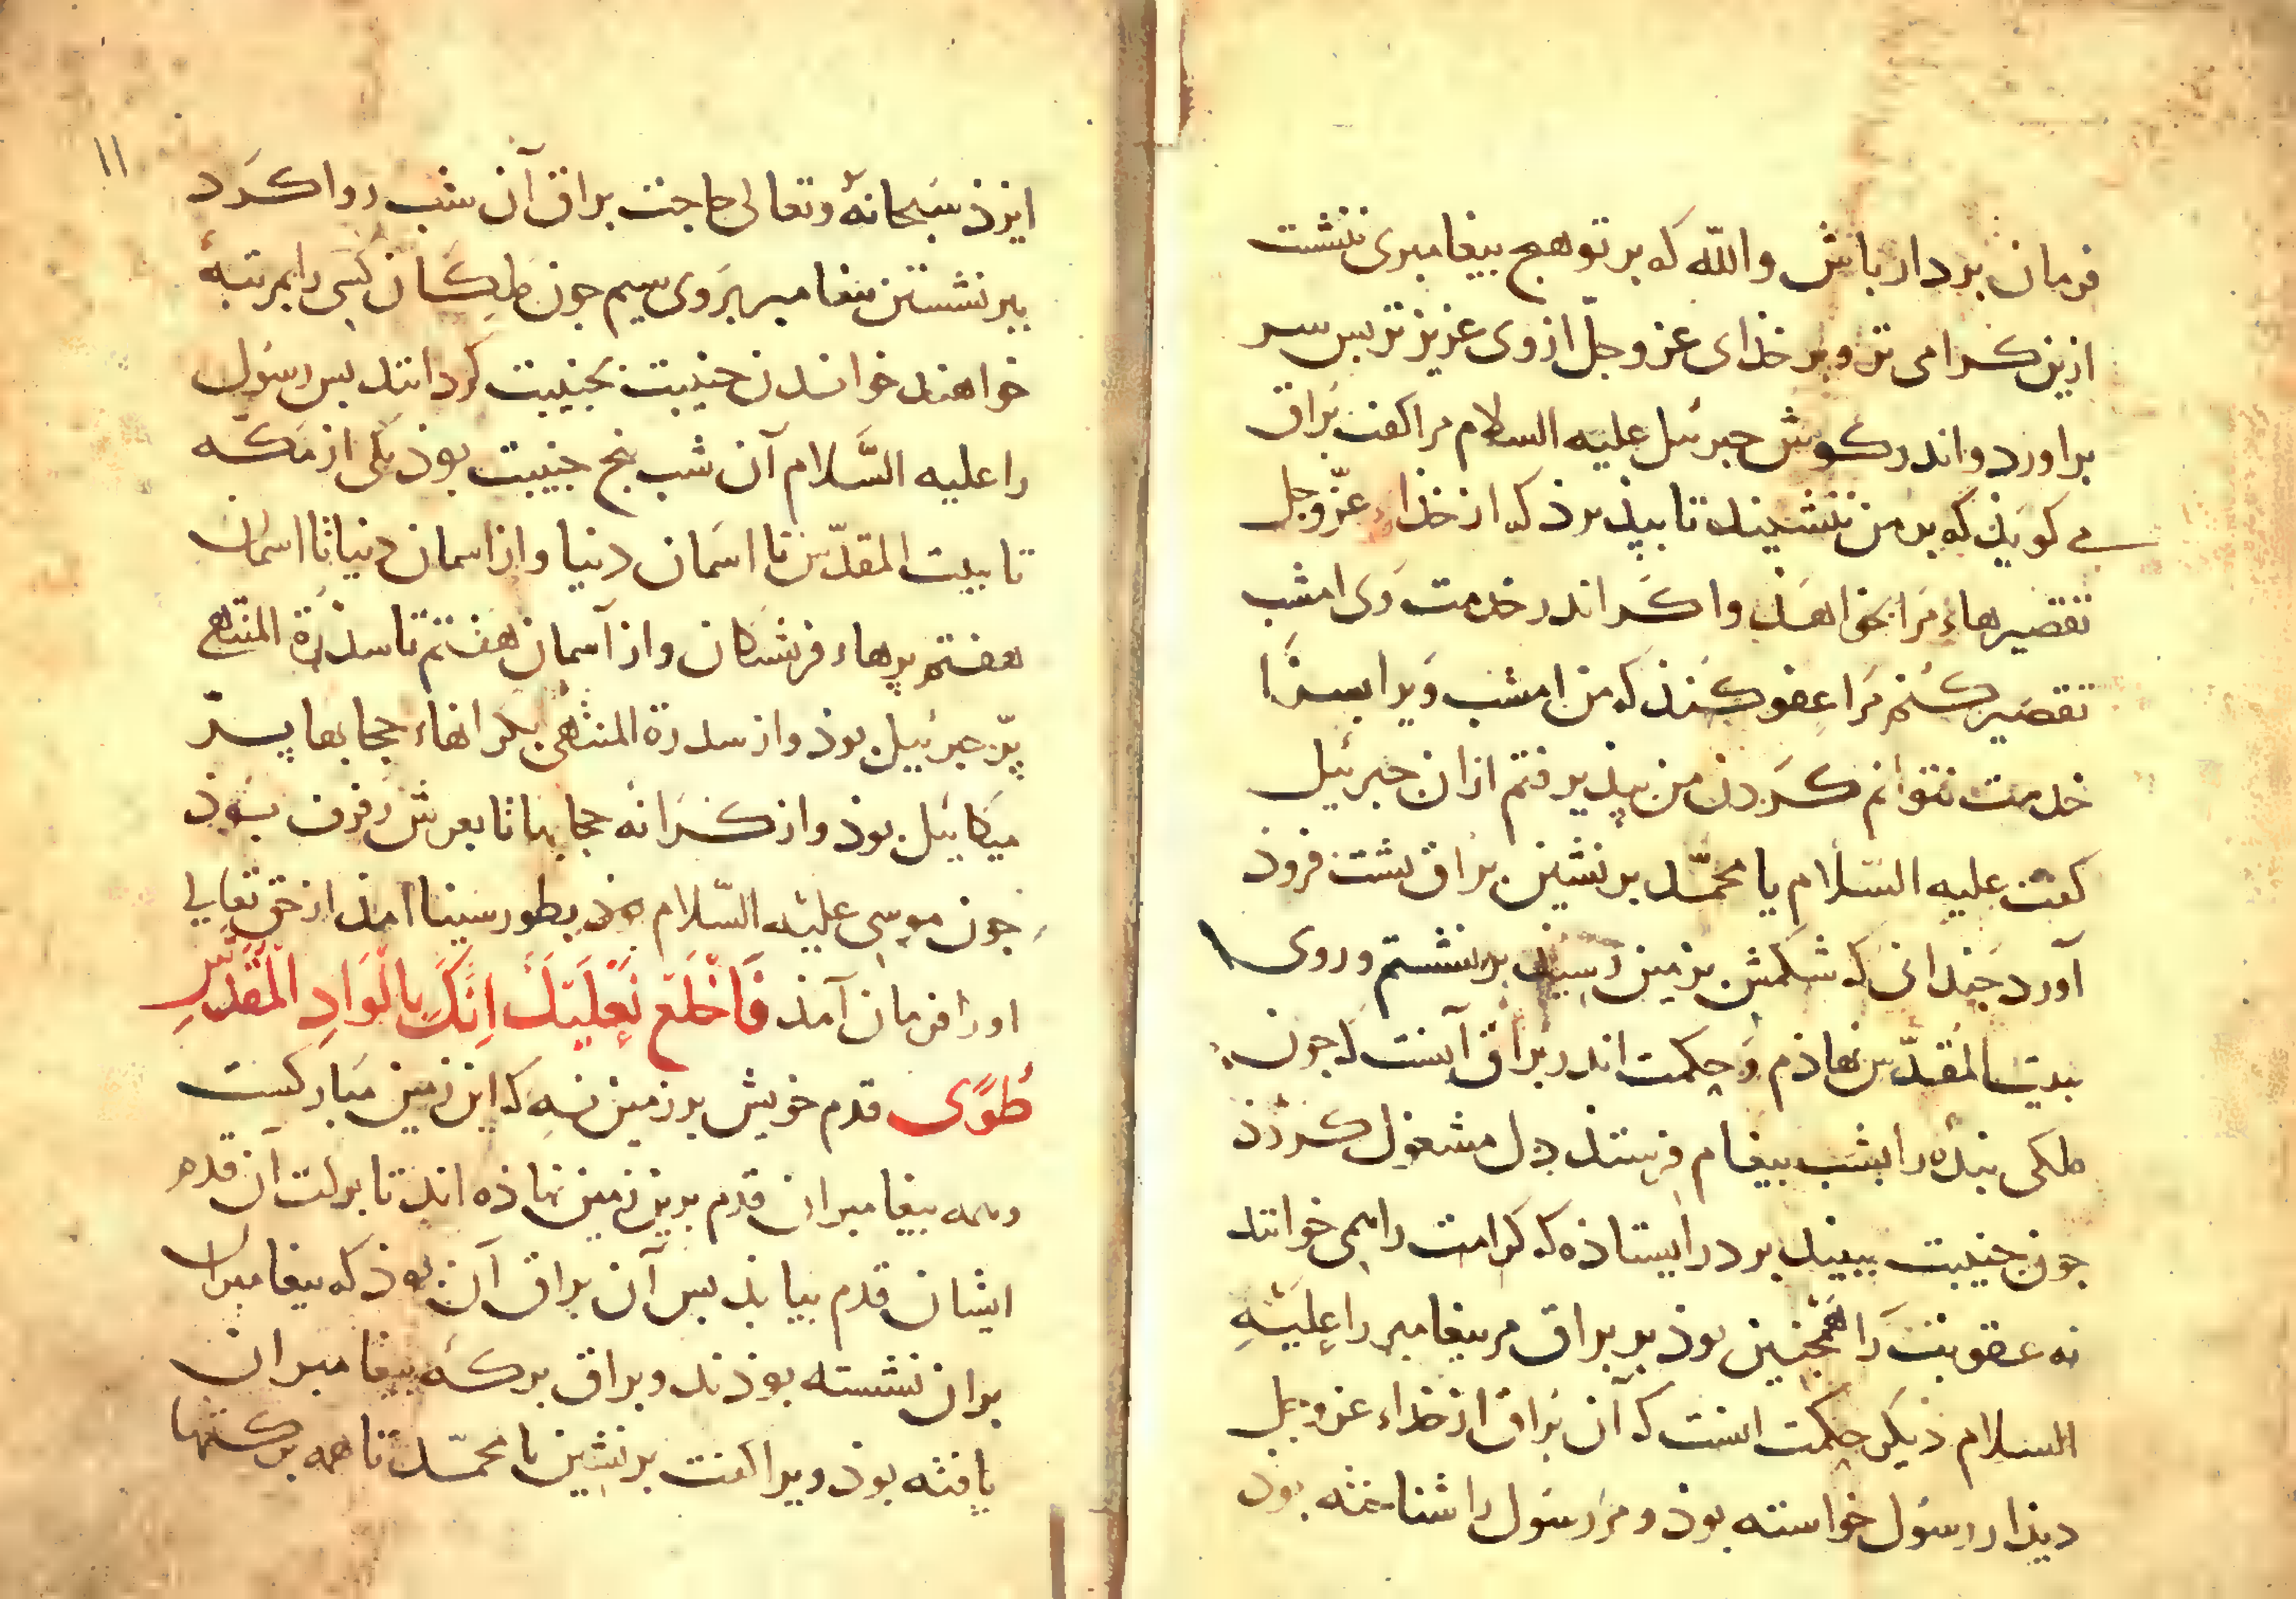 فرمان بردار باش والله که بر تو هیچ بیغامبری ننشست
ازین کرامی تر و بر خذای عز وجلّ از وی عزیزتر بس سر
براورد و اندر کوش جبرئیل علیه السلام مرا کفت بُراق
می کویذ که بر من ننشیند تا بپذیرذ که از خذاء عزّ وجل
تقصیرهاءِ مَرا بخواهذ واکَر اندر خدمت وَی امشب
تقصیر کنم مَرا عفو کنذ که من امشب وَیرا بسزا
خدمت نتوانم کردن من بپذیرفتم ازان جبرئیل
کفت علیه السّلام یا محمّد برنشین براق پشت فروذ
آورد جندانی که شکمش بزمین رسیذ برنشستم و روی
ببیت المقدّس نهاذم و حکمت اندر بُراق آنست که جون
ملکی بنده را بشب بیغام فرستد دل مشغول کردذ
جون جنیبت ببیند بر در ایستاذه که کرامت را همی خوانند
نه عقوبت را همجنین بوذ بر براق مر بیغامبر را علیْهِ
السلام دیکر حکمت انست که آن بُراق از خذاء عز وجل
دیذار رسول خواسته بوذ و مر رسول را شناخته بوذ
۱۱
ایزذ سبحانهُ وتعالی حاجت براق آن شب روا کَرد
ببرنشستن بیغامبر بروی سیم جون ملِکان کسی را بمرتبهٔ
خواهند خواندن جنیبت بجنیبت کردانند بس رسُول
را علیه السَّلام آن شب پنج جنیبت بوذ یکی از مَکّه
تا بیت المقدّس تا اسمَان دنیا و از اسمان دنیا تا اسمان
هفتم پرهاء فرشتکان و از آسمان هفتم تا سدْرَة المنتهی
پرّ جبرئیل بوذ و از سدرة المنتهی بکرانهاء حجابها پرّ
میکائیل بوذ و از کَرانه حجابها تا بعرش رفرف بوذ
جون موسی علیْه السّلام بطور سینا امذ از حق تعالی
اورا فرمان آمذ فَاخْلَعْ نَعْلَیْكَ اِنَّكَ بِالْوَادِ الْمُقَدَّسِ
طُوًی قدم خویش بر زمین نِه که این زمین مبارکست
وهمه بیغامبران قدم برین زمین نهاذه اند تا برکت آن قدم
ایشان قدم بیابذ بس آن براق آن بوذ که بیغامبران
بران نشسته بوذند و براق برکه بیغامبران
یافته بوذ ویرا کفت برنشین یا محمّد تا همه برکتها